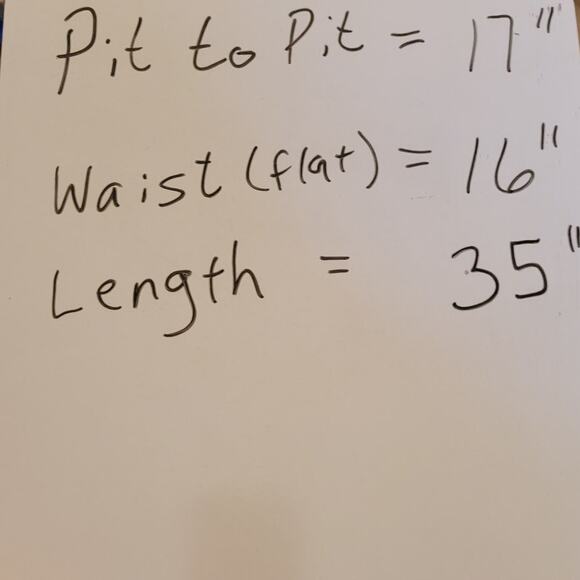 Pit to Pit = 17"
Waist (flat) = 16"
Length = 35"